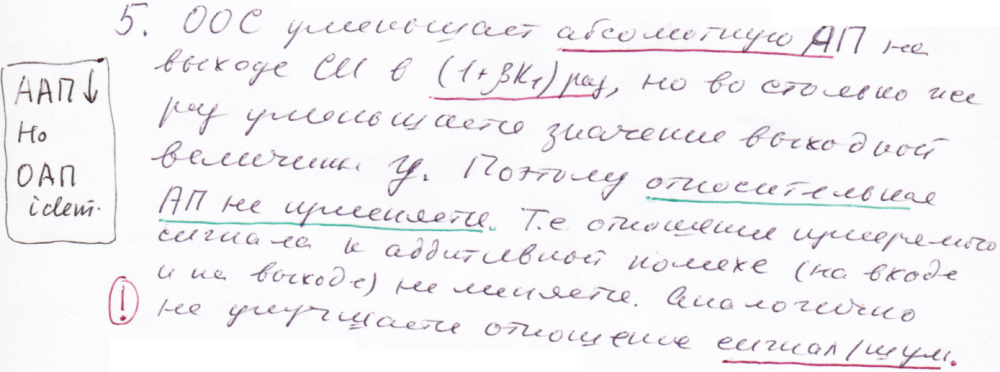 5. ООС уменьшает абсолютную АП на
выходе СИ в (1+βK₁) раз, но во столько же
раз уменьшается значение выходной
величины y. Поэтому относительная
АП не изменяется. Т.е. отношение измеряемого
сигнала к аддитивной помехе (на входе
и на выходе) не меняется. Аналогично
не улучшается отношение сигнал/шум.
ААП↓
Но
ОАП
idem.
!